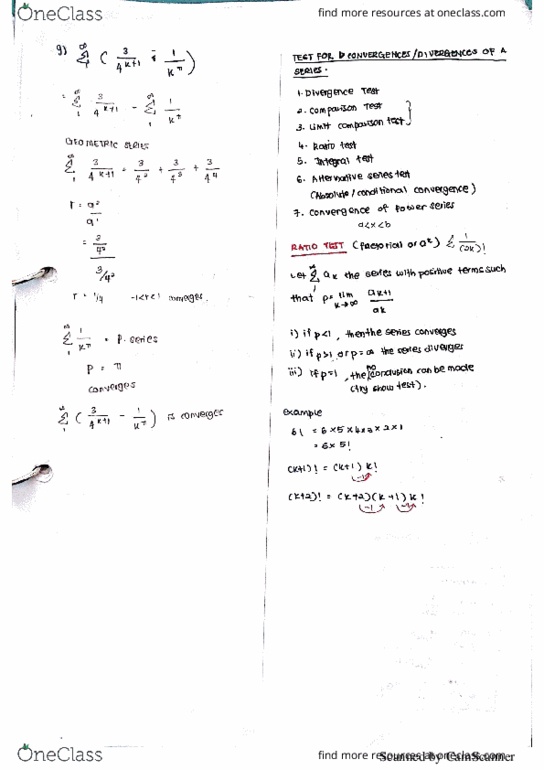 OneClass
find more resources at oneclass.com
g) ∞ Σ 1 ( 3 / 4^(k+1) - 1 / k^π )
= ∞ Σ 1 3 / 4^(k+1) - ∞ Σ 1 1 / k^π
GEOMETRIC SERIES
∞ Σ 1 3 / 4^(k+1) = 3/4² + 3/4³ + 3/4⁴
r = a² / a¹
3/4²
r = 1/4 -1<r<1 converges.
∞ Σ 1 1 / k^π = P. series
P = π
converges
∞ Σ 1 ( 3 / 4^(k+1) - 1 / k^π ) is converges
TEST FOR CONVERGENCES/DIVERGENCES OF A
SERIES.
1. Divergence Test
2. Comparison Test
3. Limit comparison test
4. Ratio test
5. Integral test
6. Alternative series test
(Absolute / conditional convergence)
7. Convergence of Power series
a<x<b
RATIO TEST (factorial or aᵏ) Σ 1 / (2k)!
Let ∞ Σ 1 ak the series with positive terms such
that p = lim k→∞ ak+1 / ak
i) if p<1, then the series converges
ii) if p>1 or p=∞ the series diverges
iii) if p=1, the no conclusion can be made
(try show test).
example
6! = 6×5×4×3×2×1
= 6×5!
(k+1)! = (k+1) k!
-1
(k+2)! = (k+2)(k+1) k!
-1
OneClass
find more resources at oneclass.com
Scanned by CamScanner